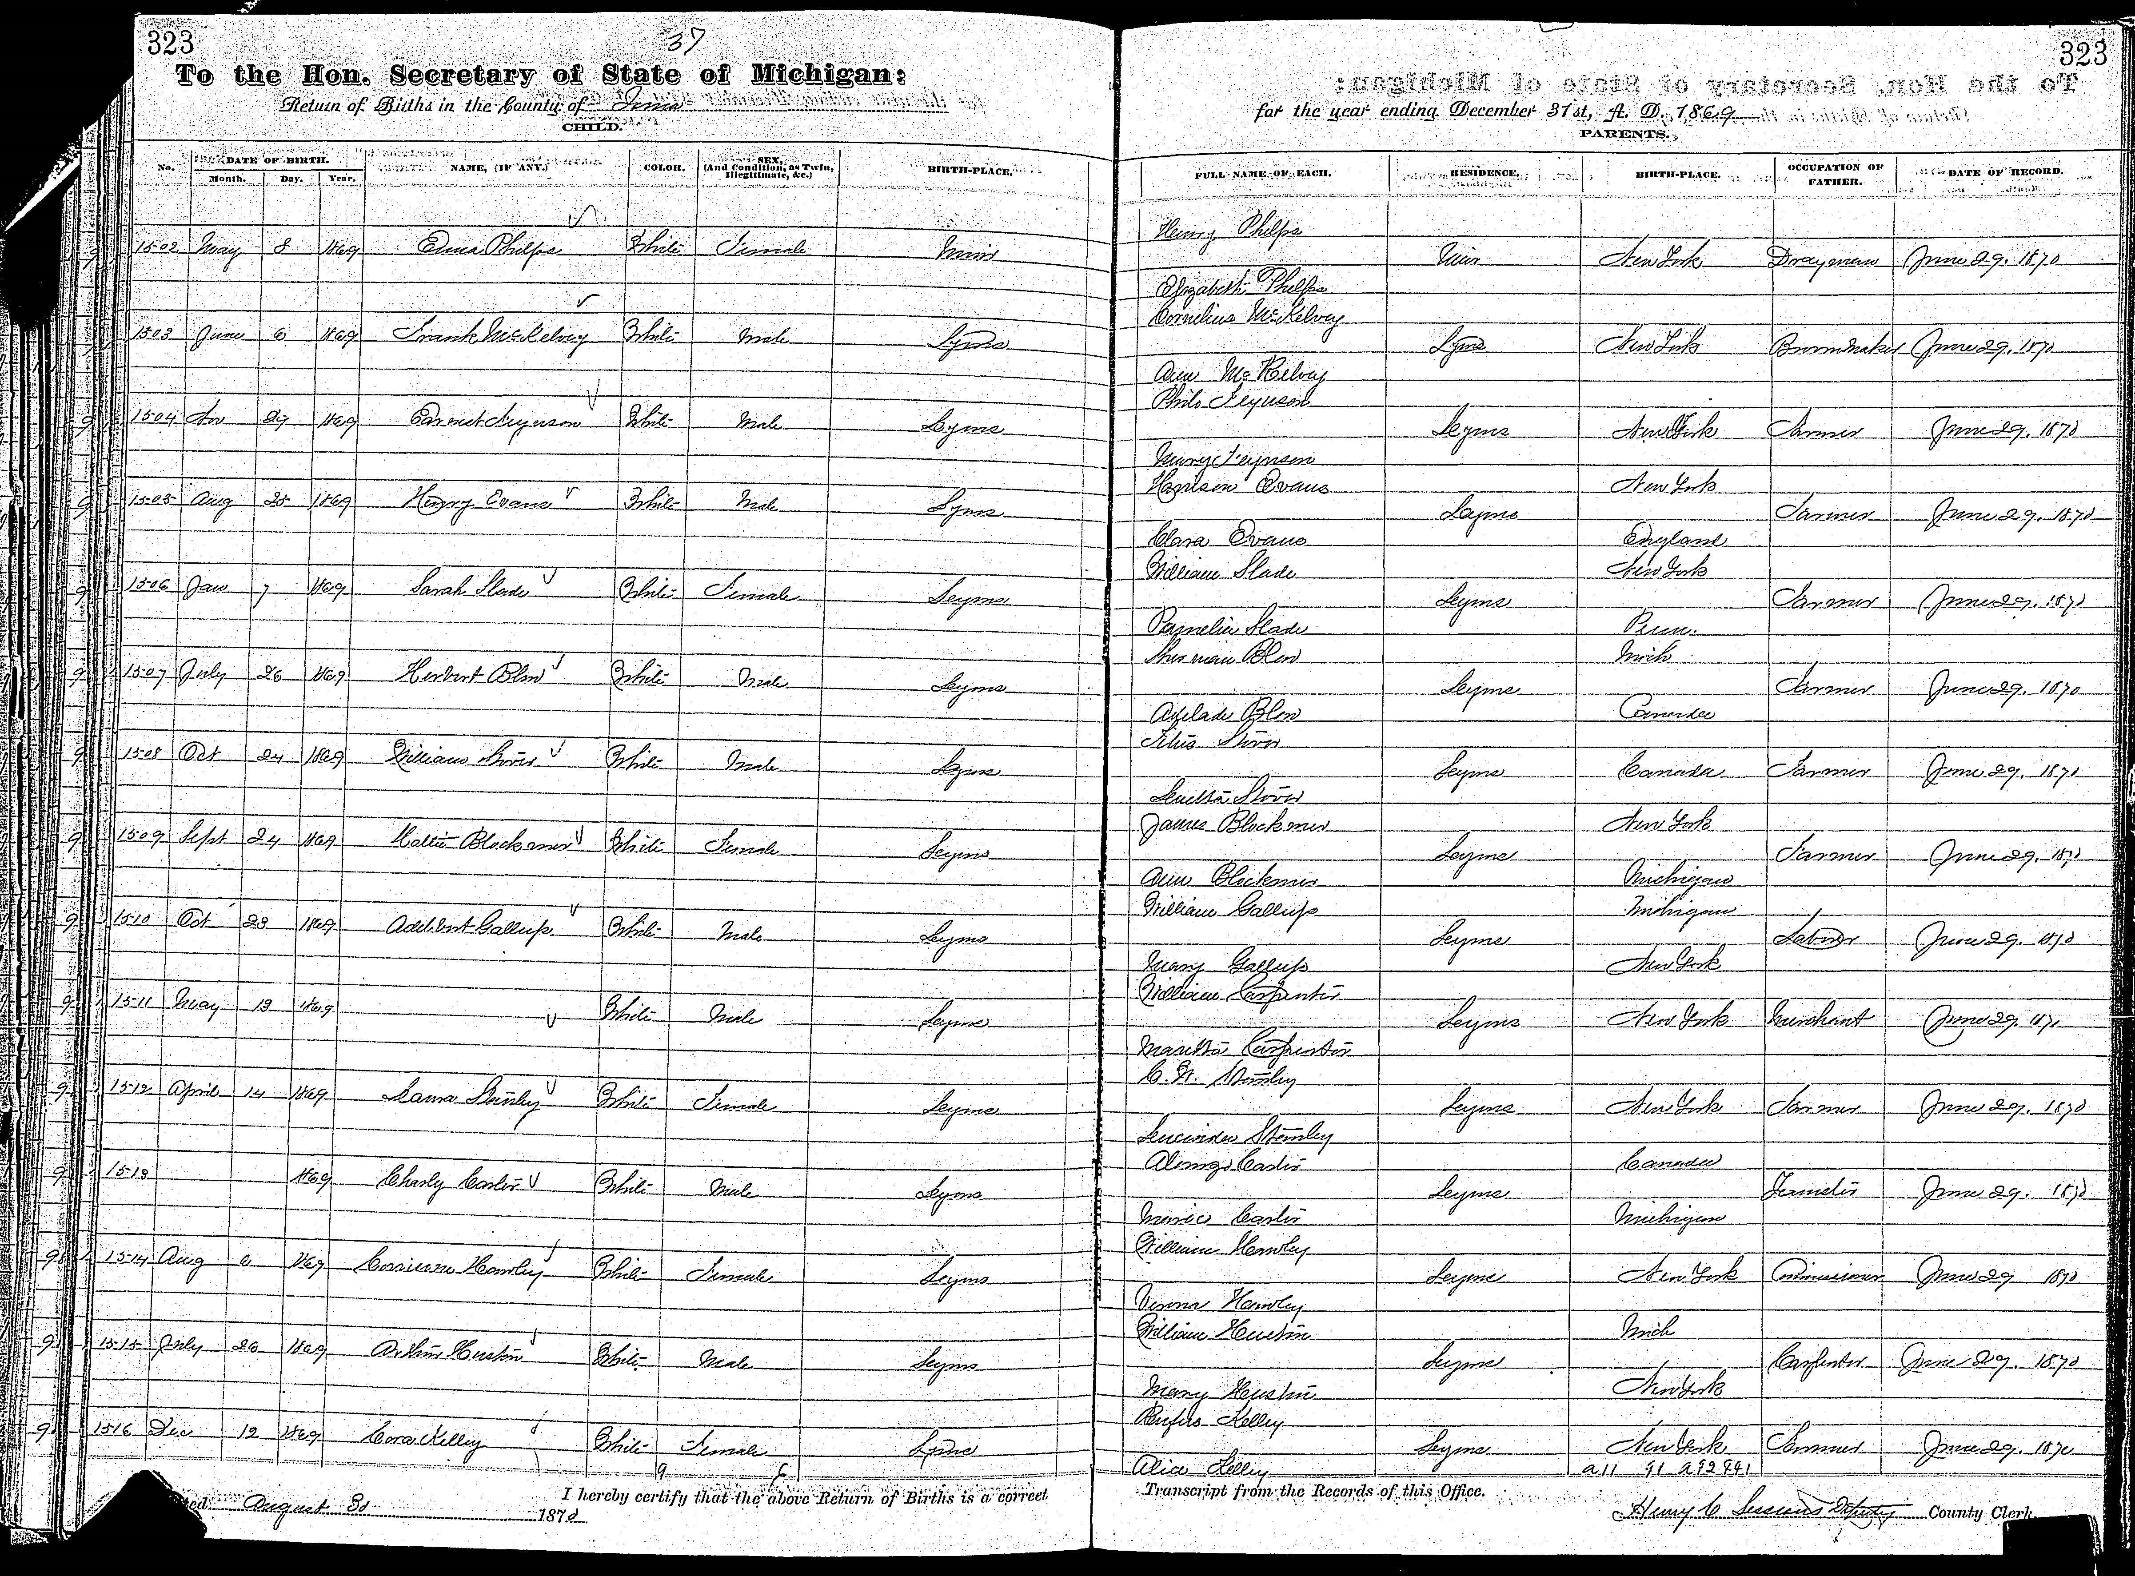 323
37
323
To the Hon. Secretary of State of Michigan:
Return of Births in the County of Ionia
for the year ending December 31st, A. D. 1869
CHILD.
PARENTS.
No. DATE OF BIRTH. Month. Day. Year. NAME, (IF ANY.) COLOR. SEX, (And Condition, as Twin, Illegitimate, &c.) BIRTH-PLACE.
FULL NAME OF EACH. RESIDENCE. BIRTH-PLACE. OCCUPATION OF FATHER. DATE OF RECORD.
Henry Phelps
1502 May 8 1869 Phelps White Female Muir
Muir New York Drayman June 29. 1870
Elizabeth Phelps
Cornelius McKelvey
1503 June 6 1869 Frank McKelvey White Male Lyons
Lyons New York June 29. 1870
Ann McKelvey
Philo
1504 1869 White Male Lyons
Lyons New York Farmer June 29. 1870
Mary
Harrison Evans New York
1505 Aug 25 1869 Henry Evans White Male Lyons
Lyons Farmer June 29. 1870
Clara Evans England
William Slade New York
1506 Jan 7 1869 Sarah Slade White Female Lyons
Lyons Farmer June 29. 1870
Pamelia Slade Penn.
Blow Mich
1507 July 26 1869 Herbert Blow White Male Lyons
Lyons Farmer June 29. 1870
Blow Canada
Stover
1508 Oct 24 1869 William Stover White Male Lyons
Lyons Canada Farmer June 29. 1870
Stover
James Blackmer New York
1509 Sept 24 1869 Hattie Blackmer White Female Lyons
Lyons Farmer June 29. 1870
Ann Blackmer Michigan
William Gallup Michigan
1510 Oct 23 1869 Adelbert Gallup White Male Lyons
Lyons Labor June 29. 1870
Mary Gallup New York
William Carpenter
1511 May 13 1869 White Male Lyons
Lyons New York Merchant June 29. 1870
Martha Carpenter
Stanley
1512 April 14 1869 Stanley White Female Lyons
Lyons New York Farmer June 29. 1870
Lucinda Stanley
Alonzo Canada
1513 1869 Charly White Male Lyons
Lyons June 29. 1870
Michigan
William Hawley
1514 Aug 6 1869 Hawley White Female Lyons
Lyons New York June 29 1870
Hawley
William Huston Mich
1515 July 26 1869 Arthur Huston White Male Lyons
Lyons Carpenter June 29. 1870
Mary Huston New York
Rufus Kelley
1516 Dec 12 1869 Cora Kelley White Female Lyons
Lyons New York Farmer June 29. 1870
Alice Kelley
August 3d 1870
I hereby certify that the above Return of Births is a correct
Transcript from the Records of this Office.
Henry C Sessions Deputy County Clerk.